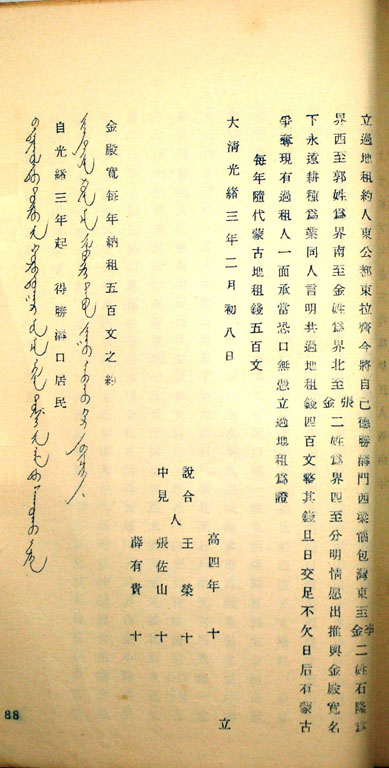 立過地租約人東公都東拉齊今將自己德勝溝門西梁包海東至李金二姓石隆爲
界西至郭姓爲界南至金姓爲界北至張金二姓爲界四至分明情愿出推與金殿寬名
下永遠耕種爲業同人言明共過地租錢四百文整其錢旦日交足不欠日后有蒙古
爭奪現有過租人一面承當恐口無憑立過地租爲證
每年隨代蒙古地租錢五百文
大清光緒三年二月初八日
立
高四年 十
說合 王榮 十
人
中見 張佐山 十
薛有貴 十
金殿寬每年納租五百文之約
自光緒三年起 得勝溝口居民
88